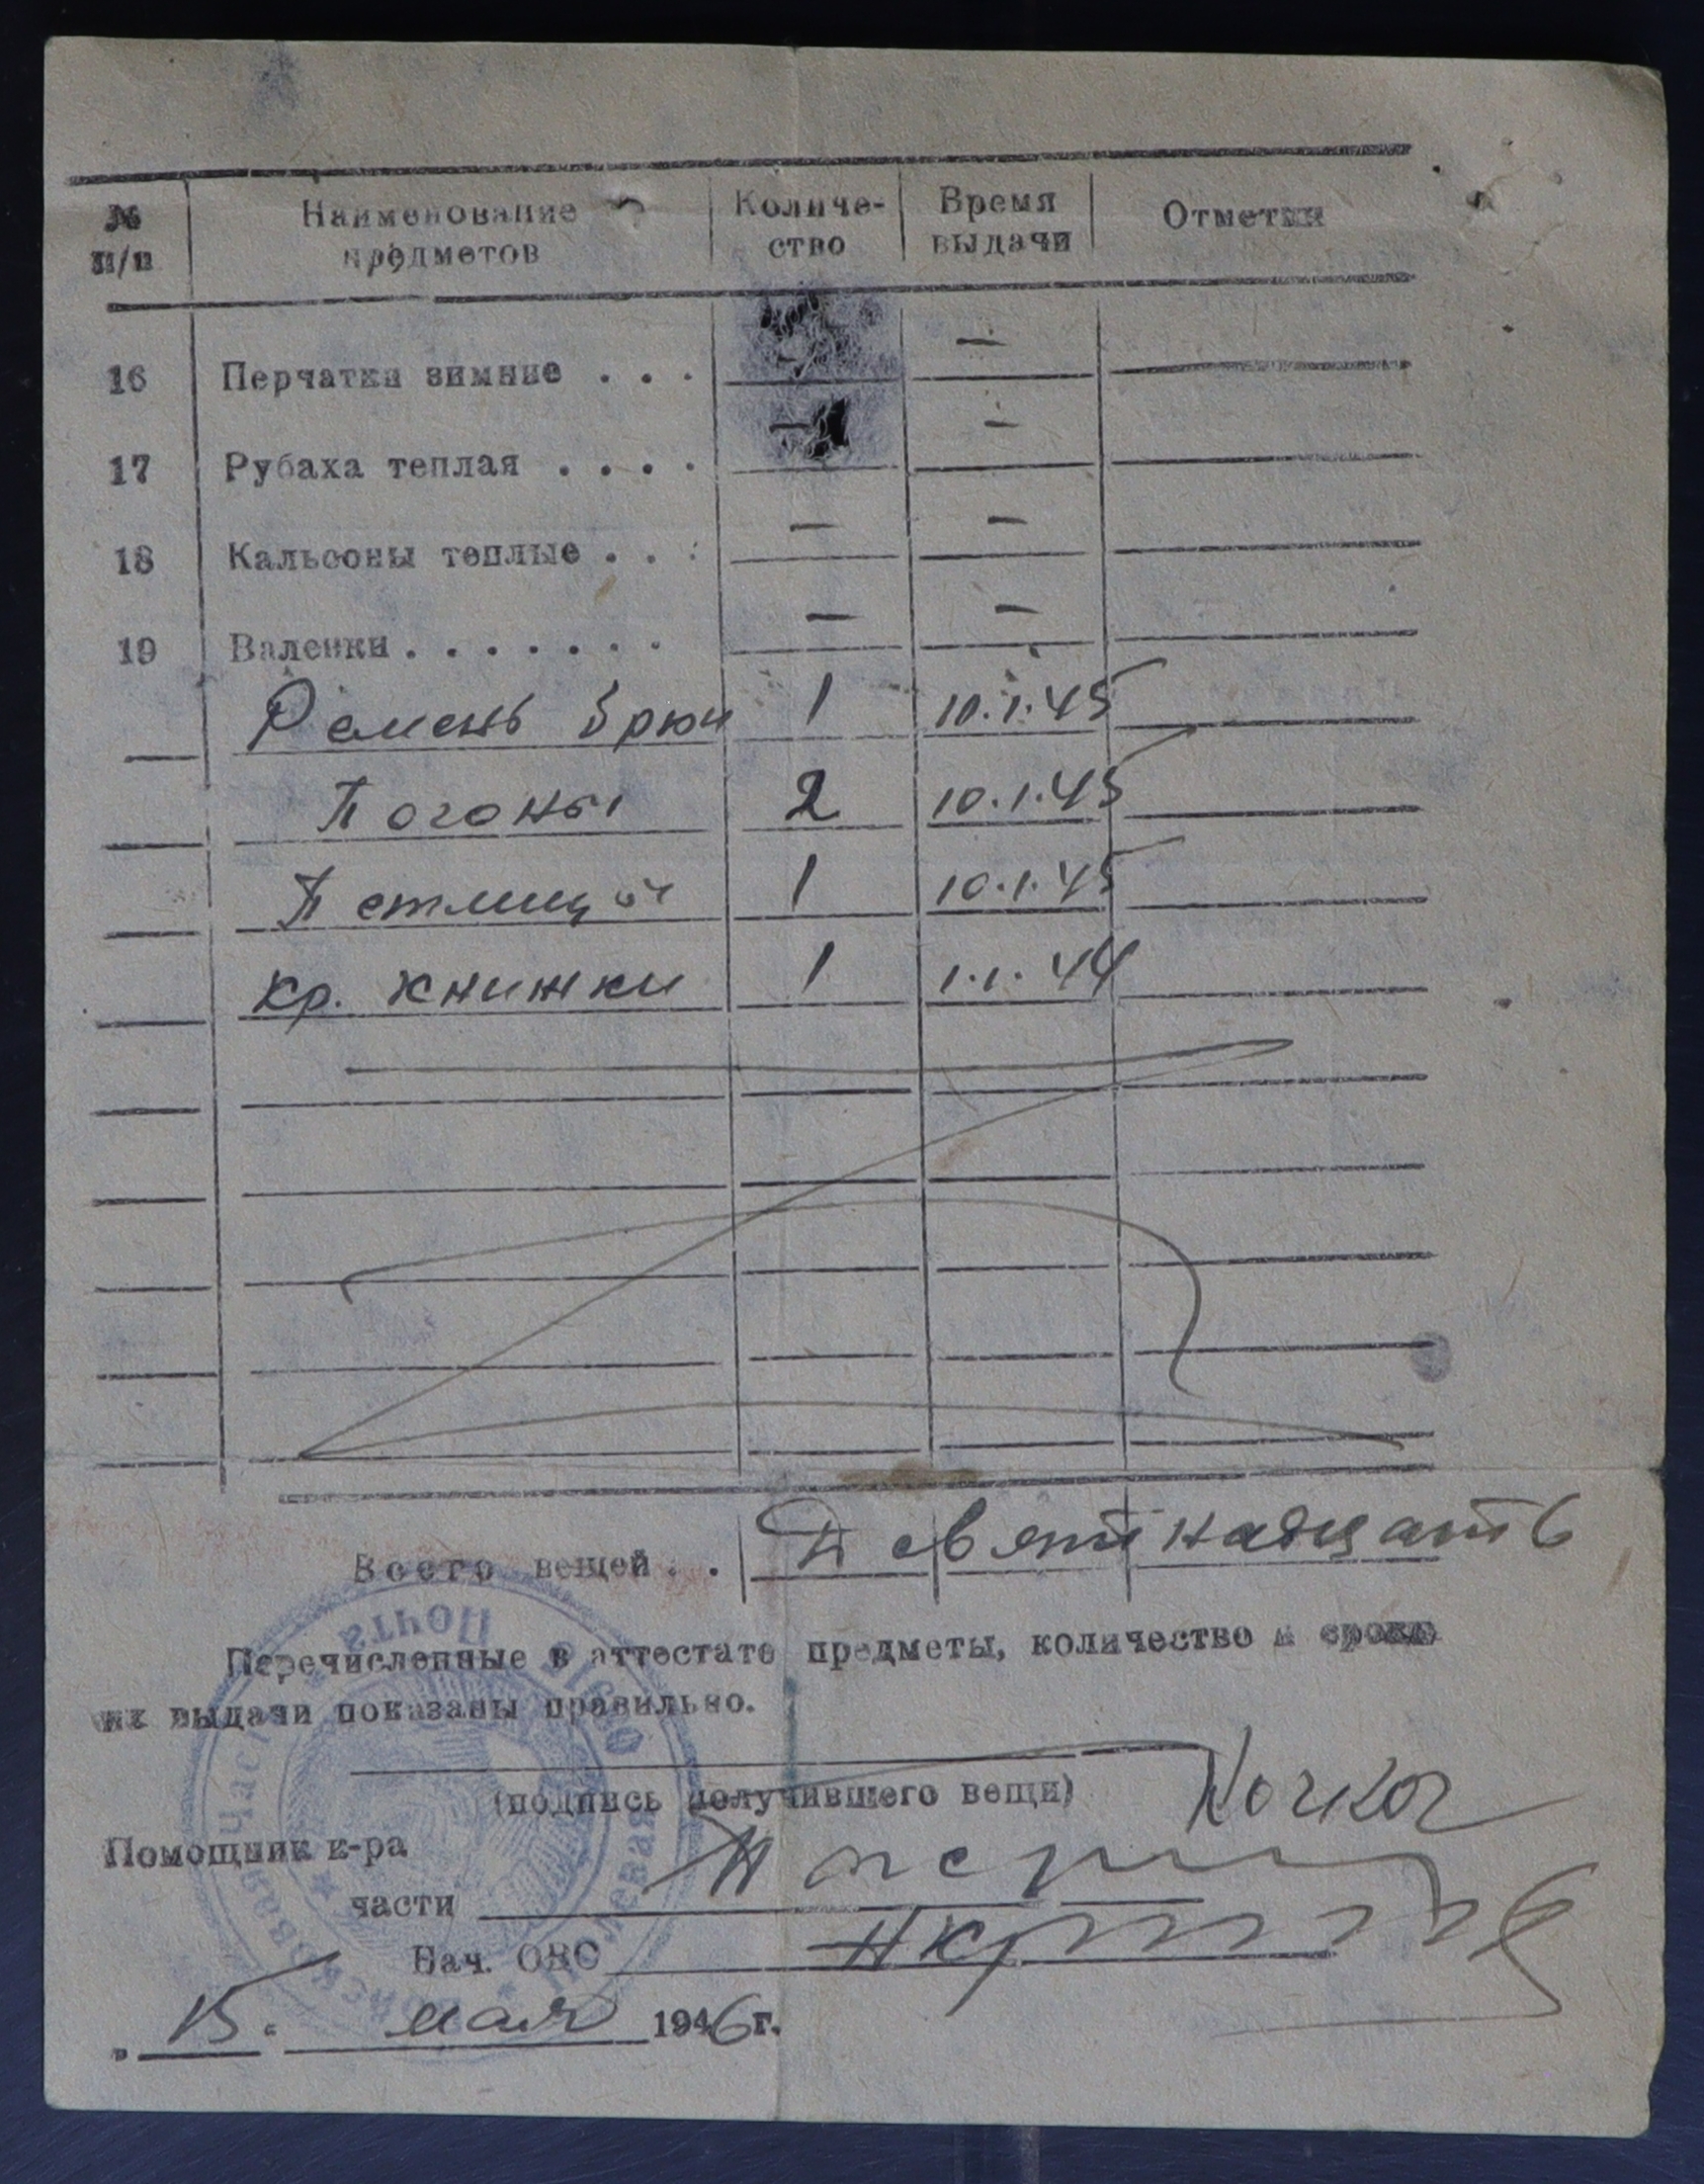 № п/п Наименование предметов Количе-ство Время выдачи Отметки
16 Перчатки зимние . . . —
17 Рубаха теплая . . . . — —
18 Кальсоны теплые . . . — —
19 Валенки . . . . . . . — —
Ремень брюч 1 10.1.45
Погоны 2 10.1.45
Петлицы 1 10.1.45
кр. книжки 1 1.1.44
Всего вещей . . Девятнадцать
Перечисленные в аттестате предметы, количество и сроки
их выдачи показаны правильно.
(подпись получившего вещи)
Помощник к-ра
части
Нач. ОВС
"15" мая 1946 г.
Полевая Почта
Войсковая часть